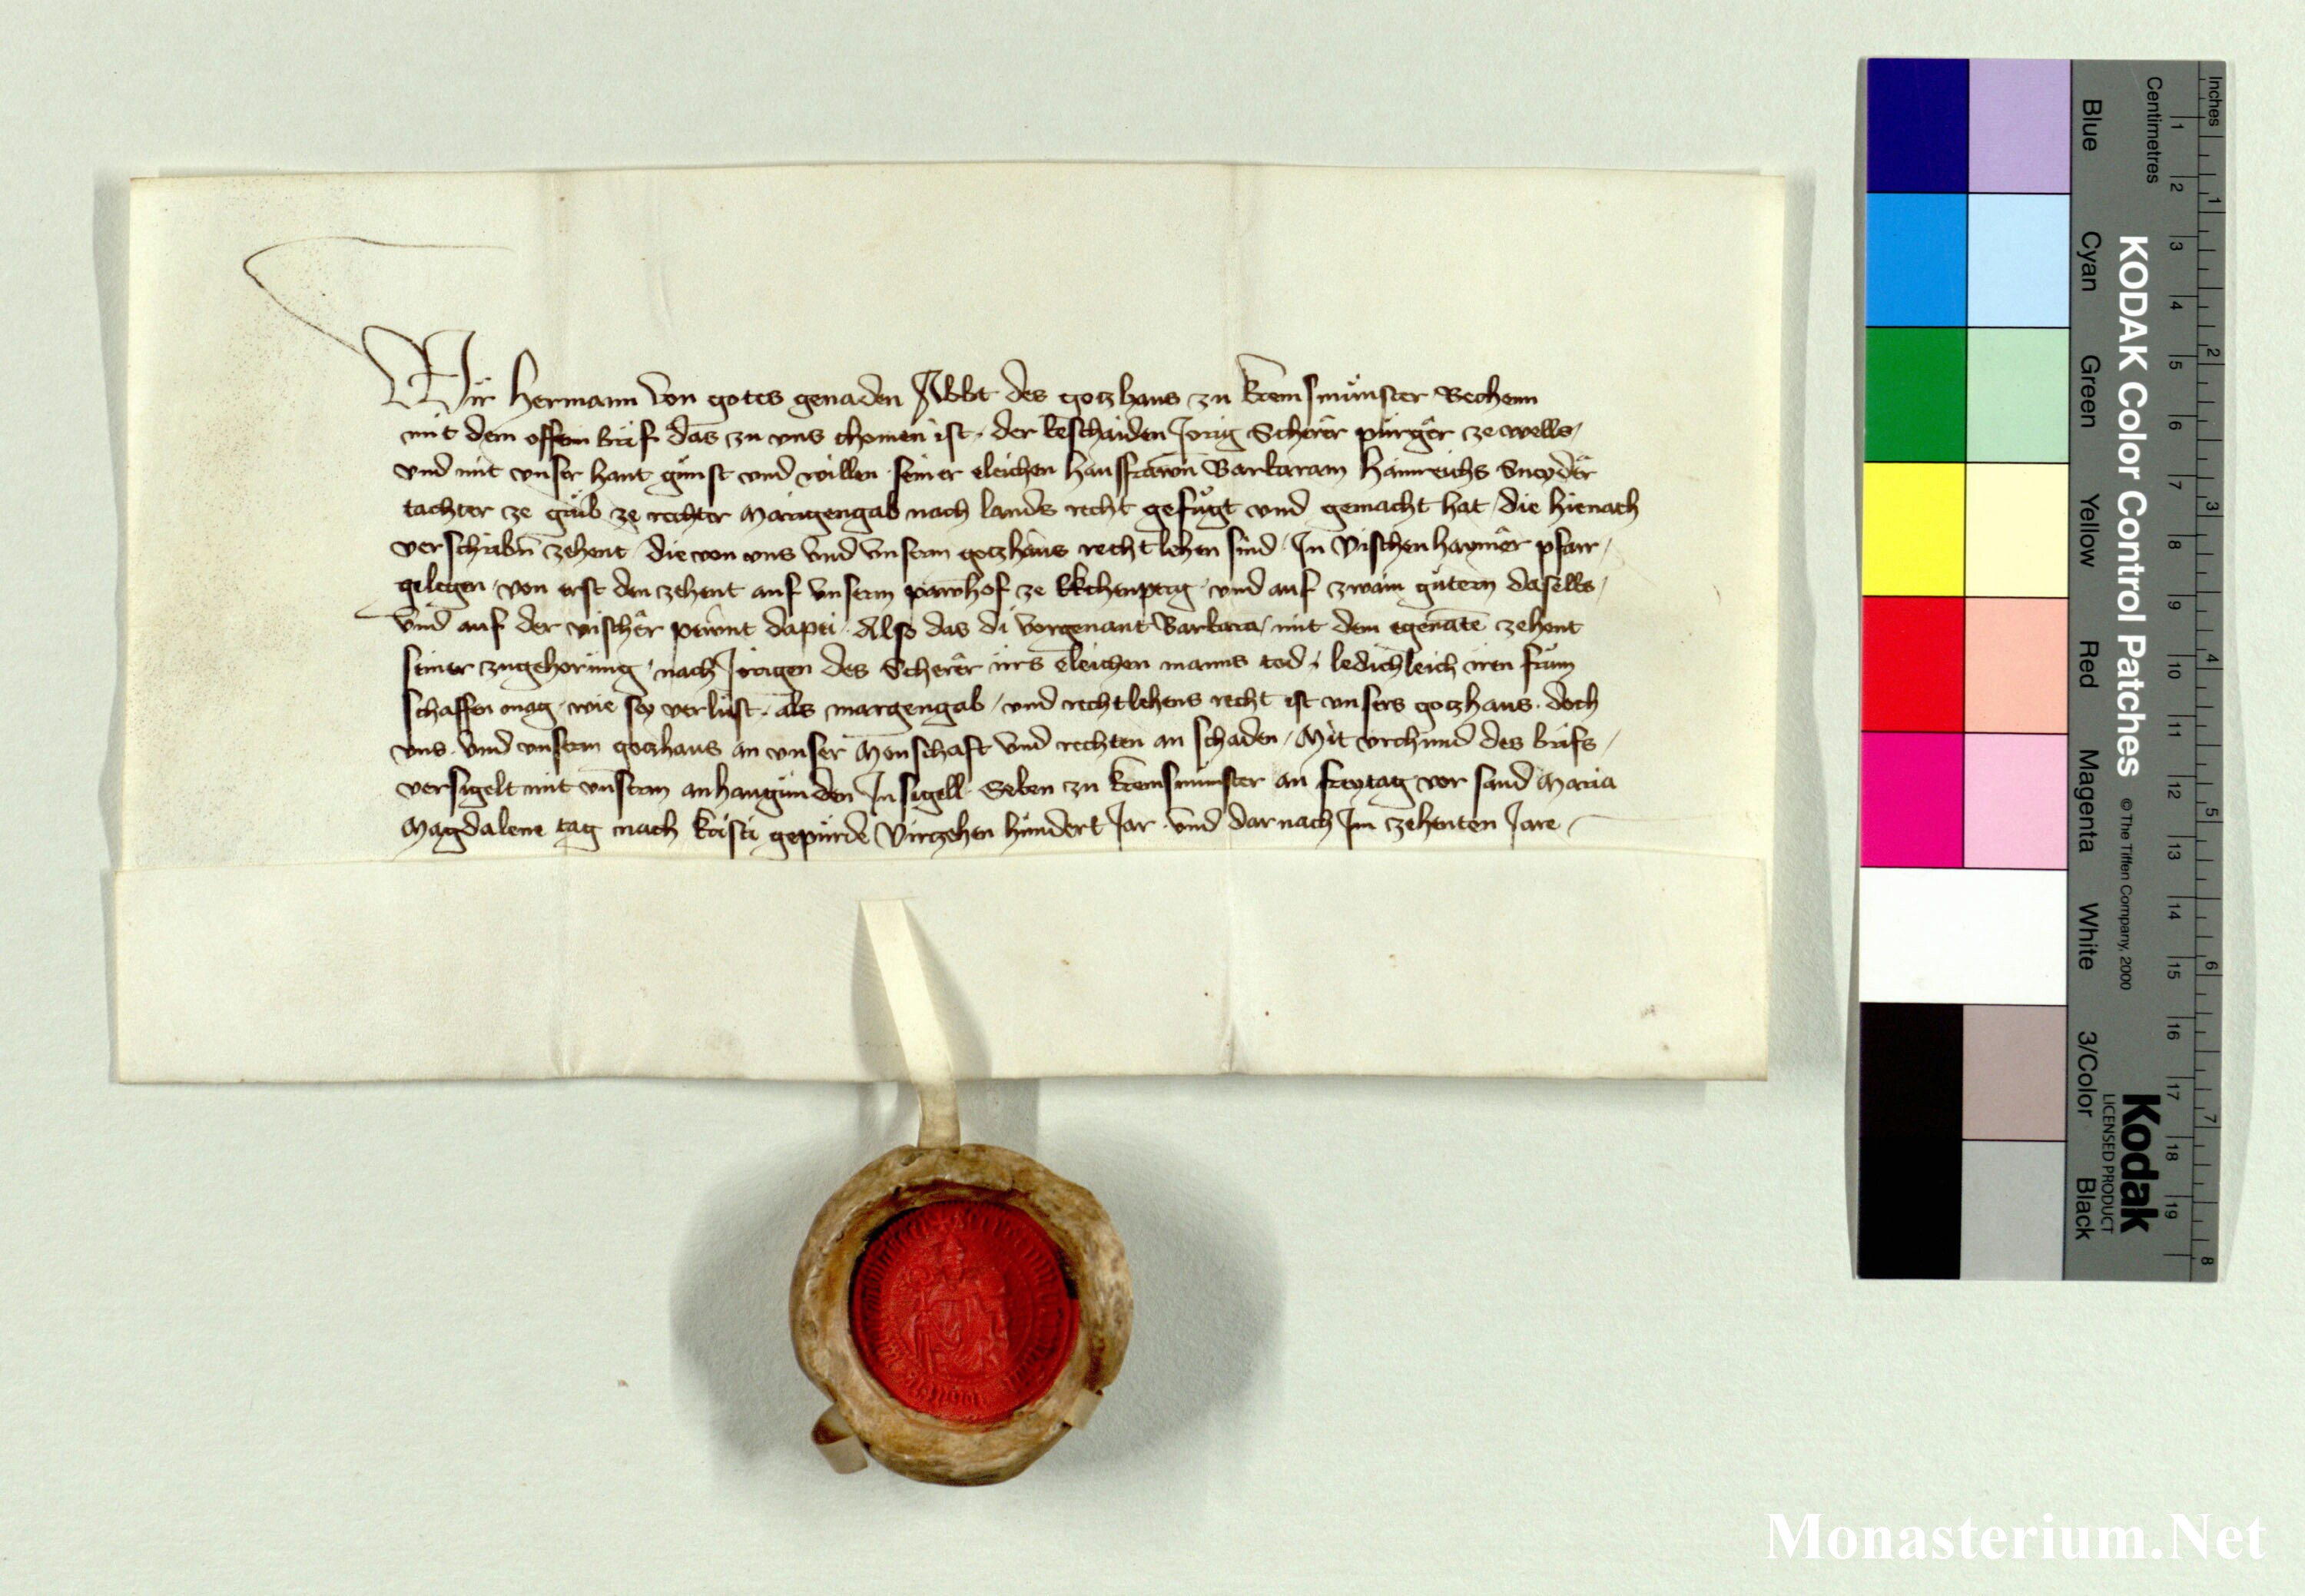 Wir Herman von gotes genaden Abbt des gotzhaus zu Kremsmünster Vechenn
mit dem offem brif das zu vns chomen ist, der beschaiden Jorig Scherêr purgêr ze wells,
vnd mit vnser hant günst vnd willen seiner eleichen hausfrawn Barbaram Hainreichs Sneydêr
tachter ze gäub ze rechter Maragengab nach lands recht gefügt vnd gemacht hat, die hienach
verschribn zehent, die von vns vnd vnserm gotzhaus rechtlehen sind, In Vischenhaymêr pfarr,
gelegen, von erst den zehent auf vnserm pawhof ze vnd auf zwain gütern dasells,
vnd auf der vischêr dapei, Also das di vorgenant Barbara, mit dem egenate zehent
seiner zugehorüng, nach Jörigen des Scherêr irs eleichen manns tod, ledichleich iren frum
schaffen mag, wie sey verlüst, als margengab, vnd rechtlehens recht ist vnsers gotzhaus, doch
vns, vnd vnserm gotzhaus an vnser Monschaft vnd rechten an schaden, Mit vrchund des brifs,
versigelt mit vnserm anhangünden Insigell, Geben zu Kremsmünster an freytag vor sand Maria
Magdalene tag nach kristi gepürde Virtzehen hündert Jar, vnd darnach Im zehenten Jare
Inches
Centimetres
KODAK Color Control Patches © The Tiffen Company, 2000
Kodak
LICENSED PRODUCT
Blue Cyan Green Yellow Red Magenta White 3/Color Black
1 2 3 4 5 6 7 8 9 10 11 12 13 14 15 16 17 18 19
1 2 3 4 5 6 7 8
Monasterium.Net